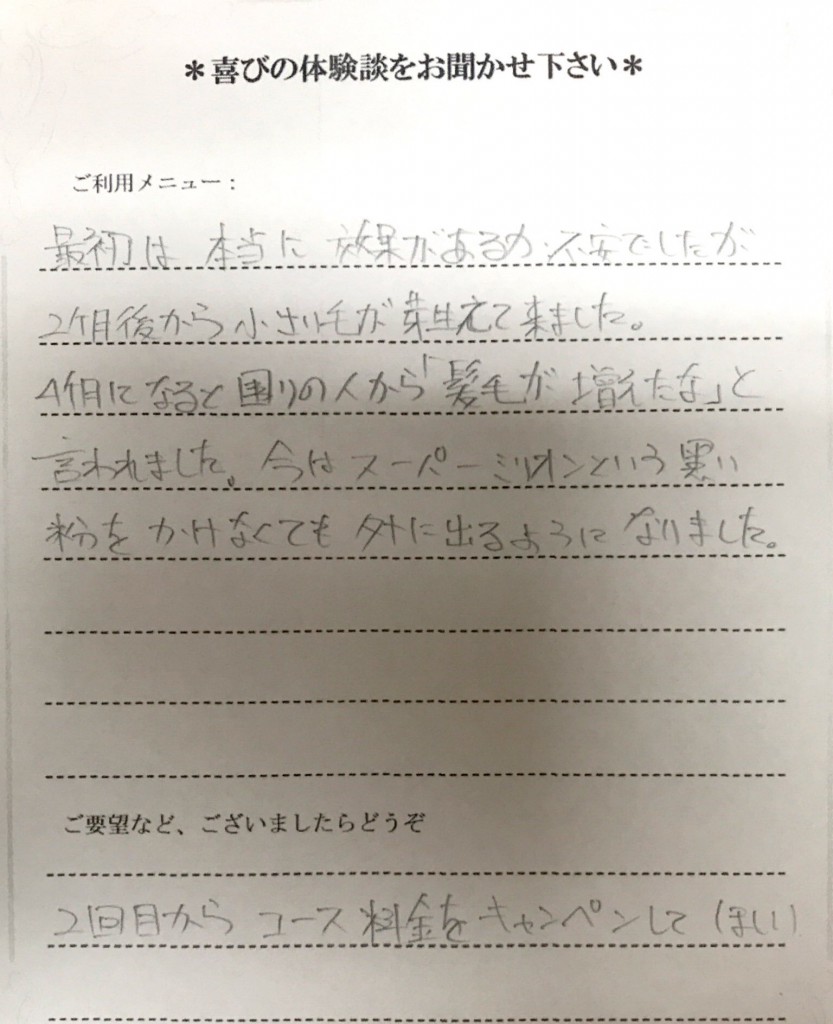 ＊喜びの体験談をお聞かせ下さい＊
ご利用メニュー：
最初は 本当に 効果があるか 不安でしたが
2ケ月後から 小さい毛が 芽生えて 来ました。
4ケ月になると 周りの人から「髪毛が 増えたな」と
言われました。今は スーパーミリオンという 黒い
粉を かけなくても 外に出るように なりました。
ご要望など、ございましたらどうぞ
2回目から コース 料金を キャンペンして ほしい